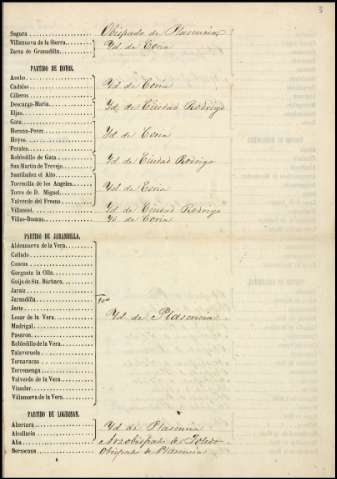 3
Segura Obispado de Plasencia
Villanueva de la Sierra
Zarza de Granadilla Yd. de Coria
PARTIDO DE HOYOS.
Acebo
Cadalso Yd. de Coria
Cilleros
Descarga-María Yd. de Ciudad Rodrigo
Eljas
Gata
Hernan-Perez Yd. de Coria
Hoyos
Perales
Robledillo de Gata Yd. de Ciudad Rodrigo
San Martin de Trevejo
Santibañez el Alto
Torrecilla de los Angeles Yd. de Coria
Torre de D. Miguel
Valverde del Fresno
Villamiel Yd. de Ciudad Rodrigo
Villas-Buenas Yd. de Coria
PARTIDO DE JARANDILLA.
Aldeanueva de la Vera
Collado
Cuacos
Garganta la Olla
Guijo de Sta. Bárbara
Jaraiz
Jarandilla
Jerte
Losar de la Vera Yd. de Plasencia
Madrigal
Pasaron
Robledillo de la Vera
Talaveruela
Tornavacas
Torremenga
Valverde de la Vera
Viandar
Villanueva de la Vera
PARTIDO DE LOGROSAN.
Abertura Yd. de Plasencia
Alcollarin
Alia Arzobispado de Toledo
Berzocana Obispado de Plasencia